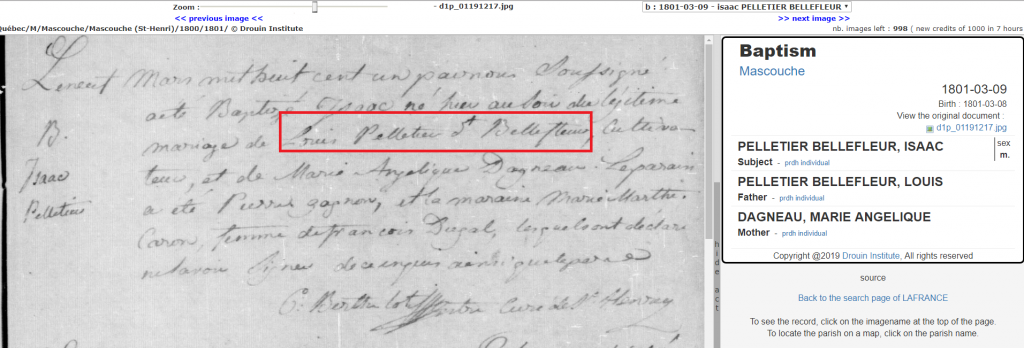 Zoom :
- d1p_01191217.jpg
b : 1801-03-09 - isaac PELLETIER BELLEFLEUR
<< previous image <<
>> next image >>
Québec/M/Mascouche/Mascouche (St-Henri)/1800/1801/ © Drouin Institute
nb. images left : 998 ( new credits of 1000 in 7 hours
Le neuf Mars mil huit cent un par nous Soussigné
a été Baptisé Isaac né hier au soir du légitime
B.
mariage de Louis Pelletier dt Bellefleur, Cultiva-
Isaac
teur, et de Marie Angelique Dagneau Le parain
Pelletier
a été Pierre gagnon, et la maraine Marie Marthe
Caron, femme de francois Dugal, lesquels ont déclaré
ne savoir signer de ce enquis ainsi que le pere
Curé de St Henry
Baptism
Mascouche
1801-03-09
Birth : 1801-03-08
View the original document :
d1p_01191217.jpg
PELLETIER BELLEFLEUR, ISAAC
sex
Subject - prdh individual
m.
PELLETIER BELLEFLEUR, LOUIS
Father - prdh individual
DAGNEAU, MARIE ANGELIQUE
Mother - prdh individual
Copyright @2019 Drouin Institute, All rights reserved
source
Back to the search page of LAFRANCE
To see the record, click on the imagename at the top of the page.
To locate the parish on a map, click on the parish name.